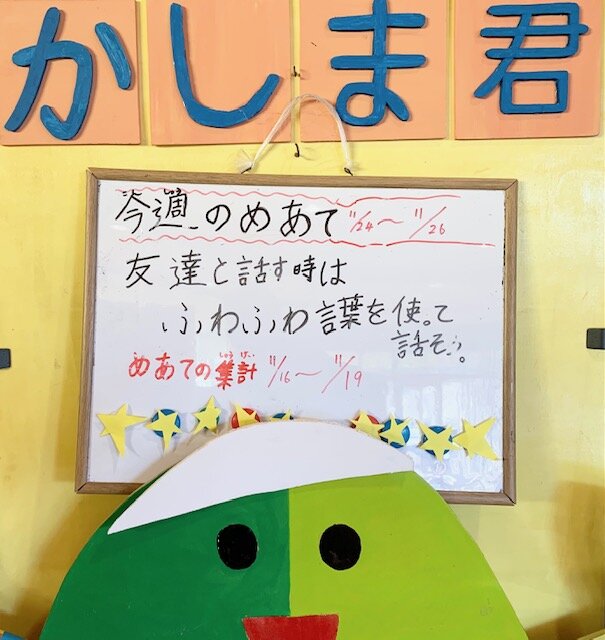 かしま君
今週のめあて 11/24〜11/26
友達と話す時は
ふわふわ言葉を使って
話そう。
めあての集計 11/16〜11/19
しゅうけい